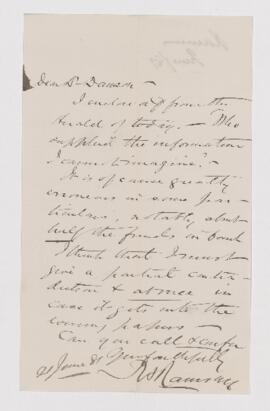 Dear Dr Dawson
I enclose a slip from the
Herald of to day. - Who
supplied the information
I cannot imagine. -
It is of course greatly
erroneous in some par-
ticulars, notably about
half the funds in bond
I think that I must
give a partial contra-
diction & at once in
case it gets into the
evening papers -
Can you call & confer
Yours faithfully
21 June 81
R A Ramsay